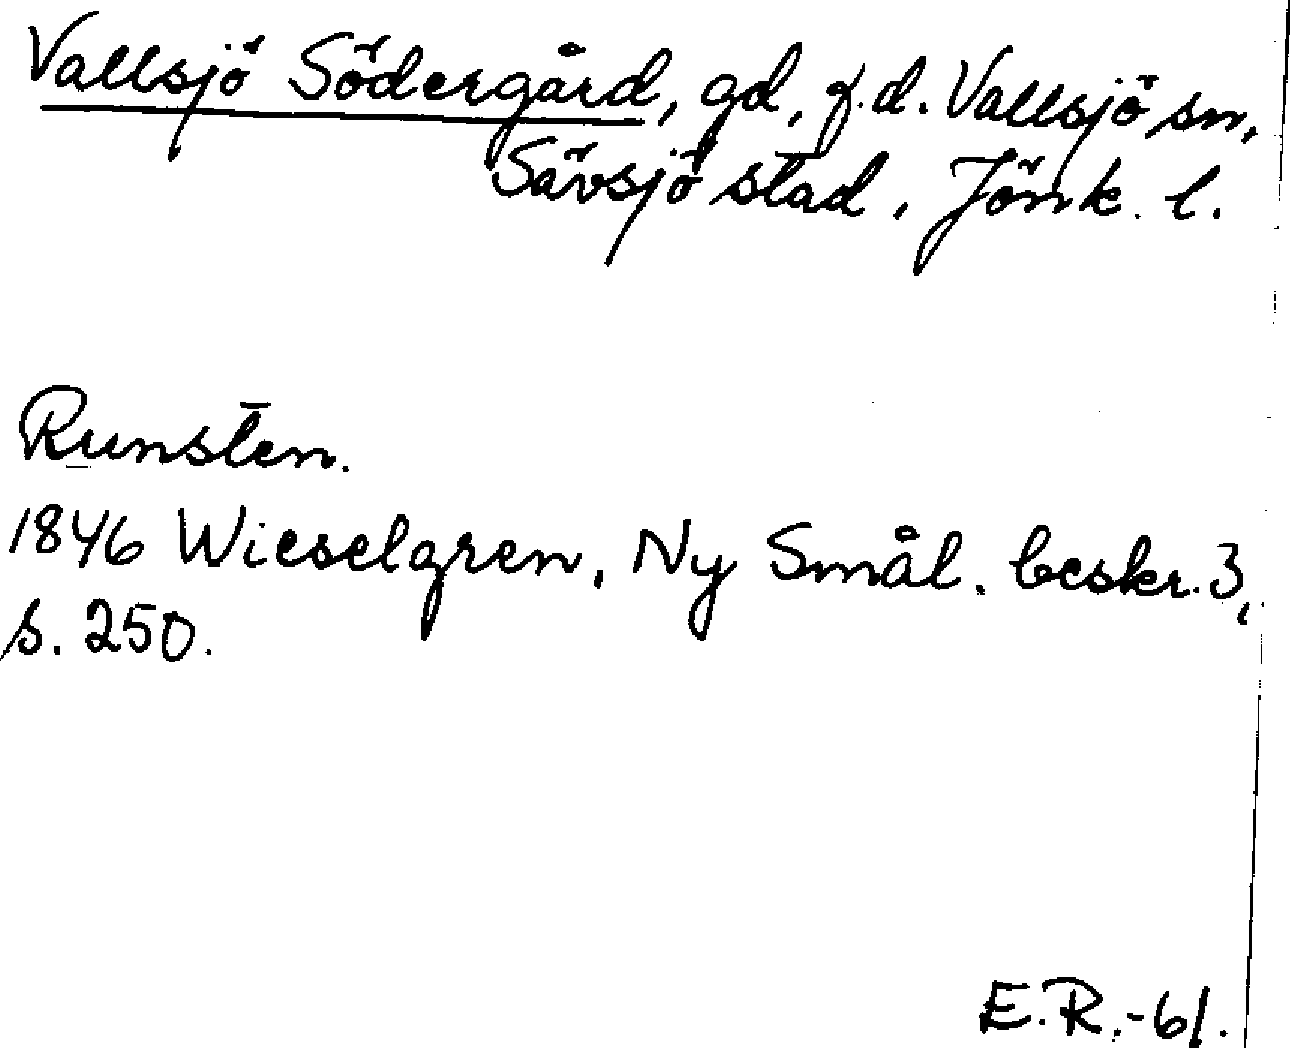 Vallsjö Södergård, gd, f.d. Vallsjö sn,
Sävsjö stad, Jönk. l.
Runsten.
1846 Wieselgren, Ny Smål. beskr. 3,
s. 250.
E.R.-61.